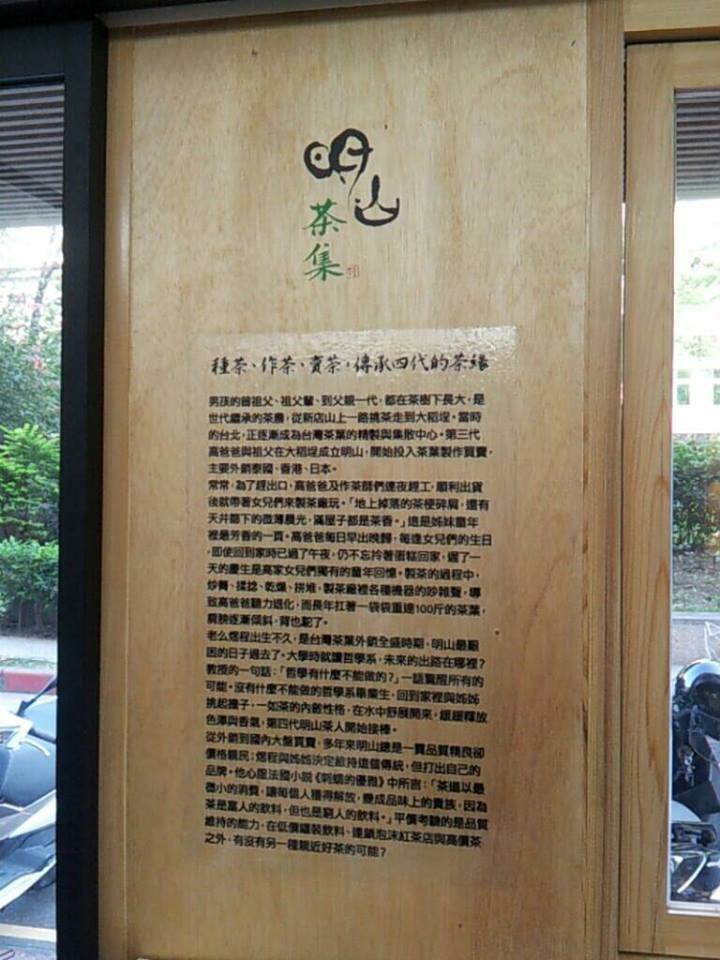 明山
茶集
種茶、作茶、賣茶,傳承四代的茶緣
男孩的曾祖父、祖父輩、到父親一代,都在茶樹下長大,是
世代繼承的茶農,從新店山上一路挑茶走到大稻埕。當時
的台北,正逐漸成為台灣茶葉的精製與集散中心。第三代
高爸爸與祖父在大稻埕成立明山,開始投入茶葉製作買賣,
主要外銷泰國、香港、日本。
常常,為了趕出口,高爸爸及作茶師們連夜趕工,順利出貨
後就帶著女兒們來製茶廠玩。「地上掉落的茶梗碎屑,還有
天井篩下的微薄晨光,滿屋子都是茶香。」這是姊妹童年
裡最芳香的一頁。高爸爸每日早出晚歸,每逢女兒們的生日
,即使回到家時已過了午夜,仍不忘拎著蛋糕回家,遲了一
天的慶生是高家女兒們獨有的童年回憶。製茶的過程中,
炒菁、揉捻、乾燥、拼堆,製茶廠裡各種機器的吵雜聲,導
致高爸爸聽力退化,而長年扛著一袋袋重達100斤的茶葉,
肩膀逐漸傾斜,背也駝了。
老么煜程出生不久,是台灣茶葉外銷全盛時期,明山最艱
困的日子過去了。大學時就讀哲學系,未來的出路在哪裡?
教授的一句話:「哲學有什麼不能做的?」一語驚醒所有的
可能。沒有什麼不能做的哲學系畢業生,回到家裡與姊姊
挑起擔子,一如茶的內斂性格,在水中舒展開來,緩緩釋放
色澤與香氣,第四代明山茶人開始接棒。
從外銷到國內大盤買賣,多年來明山總是一貫品質精良卻
價格親民;煜程與姊姊決定維持這個傳統,但打出自己的
品牌。他心服法國小說《刺蝟的優雅》中所言:「茶道以最
微小的消費,讓每個人獲得解放,變成品味上的貴族,因為
茶是富人的飲料,但也是窮人的飲料。」平價考驗的是品質
維持的能力,在低價罐裝飲料、連鎖泡沫紅茶店與高價茶
之外,有沒有另一種親近好茶的可能?